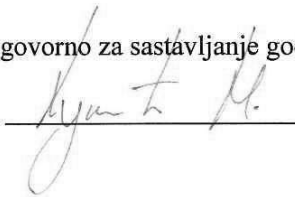 govorno za sastavljanje go